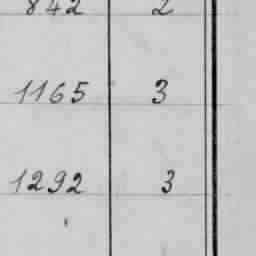 842 2
1165 3
1292 3